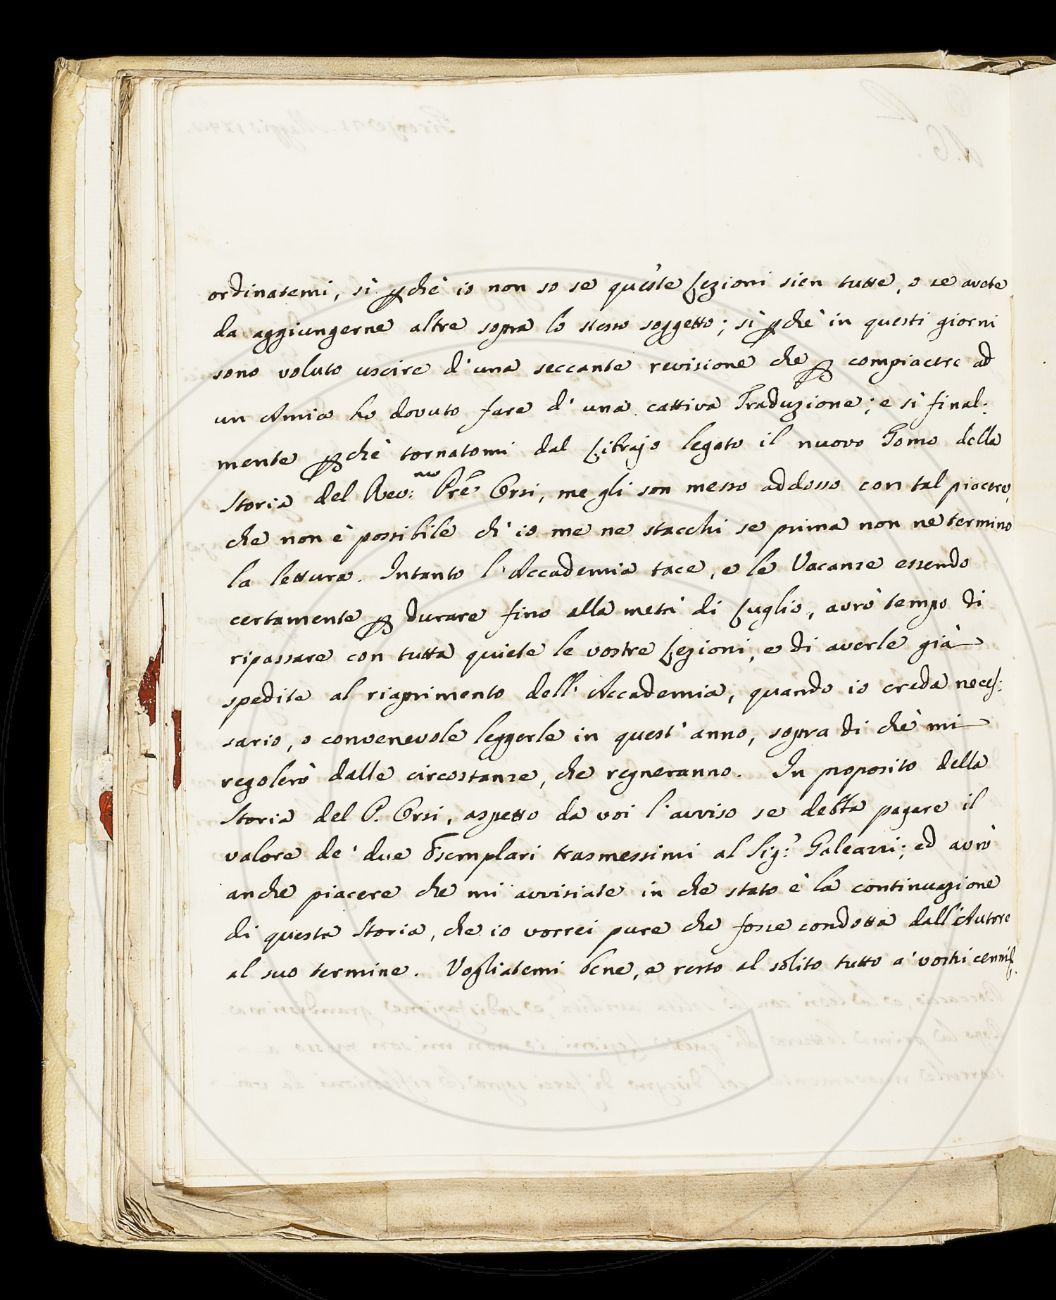 ordinatemi, sì perchè io non so se queste Lezioni sien tutte, o se avete
da aggiungerne altre sopra lo stesso soggetto; sì perchè in questi giorni
sono voluto uscire d'una seccante revisione che per compiacere ad
un Amico ho dovuto fare d'una cattiva Traduzione; e sì final:
mente perchè tornatomi dal Librajo legato il nuovo Tomo della
Storia del Rev:mo Pre: Orsi, me gli son messo addosso con tal piacere,
che non è possibile ch'io me ne stacchi se prima non ne termino
la lettura. Intanto l'Accademia tace, e le Vacanze essendo
certamente per durare fino alla metà di Luglio, avrò tempo di
ripassare con tutta quiete le vostre Lezioni, e di averle già
spedite al riaprimento dell'Accademia, quando io creda neces:
sario, o convenevole leggerle in quest'anno, sopra di chè mi
regolerò dalle circostanze, che regneranno. In proposito della
Storia del P. Orsi, aspetto da voi l'avviso se debba pagare il
valore de' due Esemplari trasmessimi al Sig: Galeazzi; ed avrò
anche piacere che mi avvisiate in che stato è la continuazione
di questa Storia, che io vorrei pure che fosse condotta dall'Autore
al suo termine. Vogliatemi bene, e resto al solito tutto a' vostri cenni.